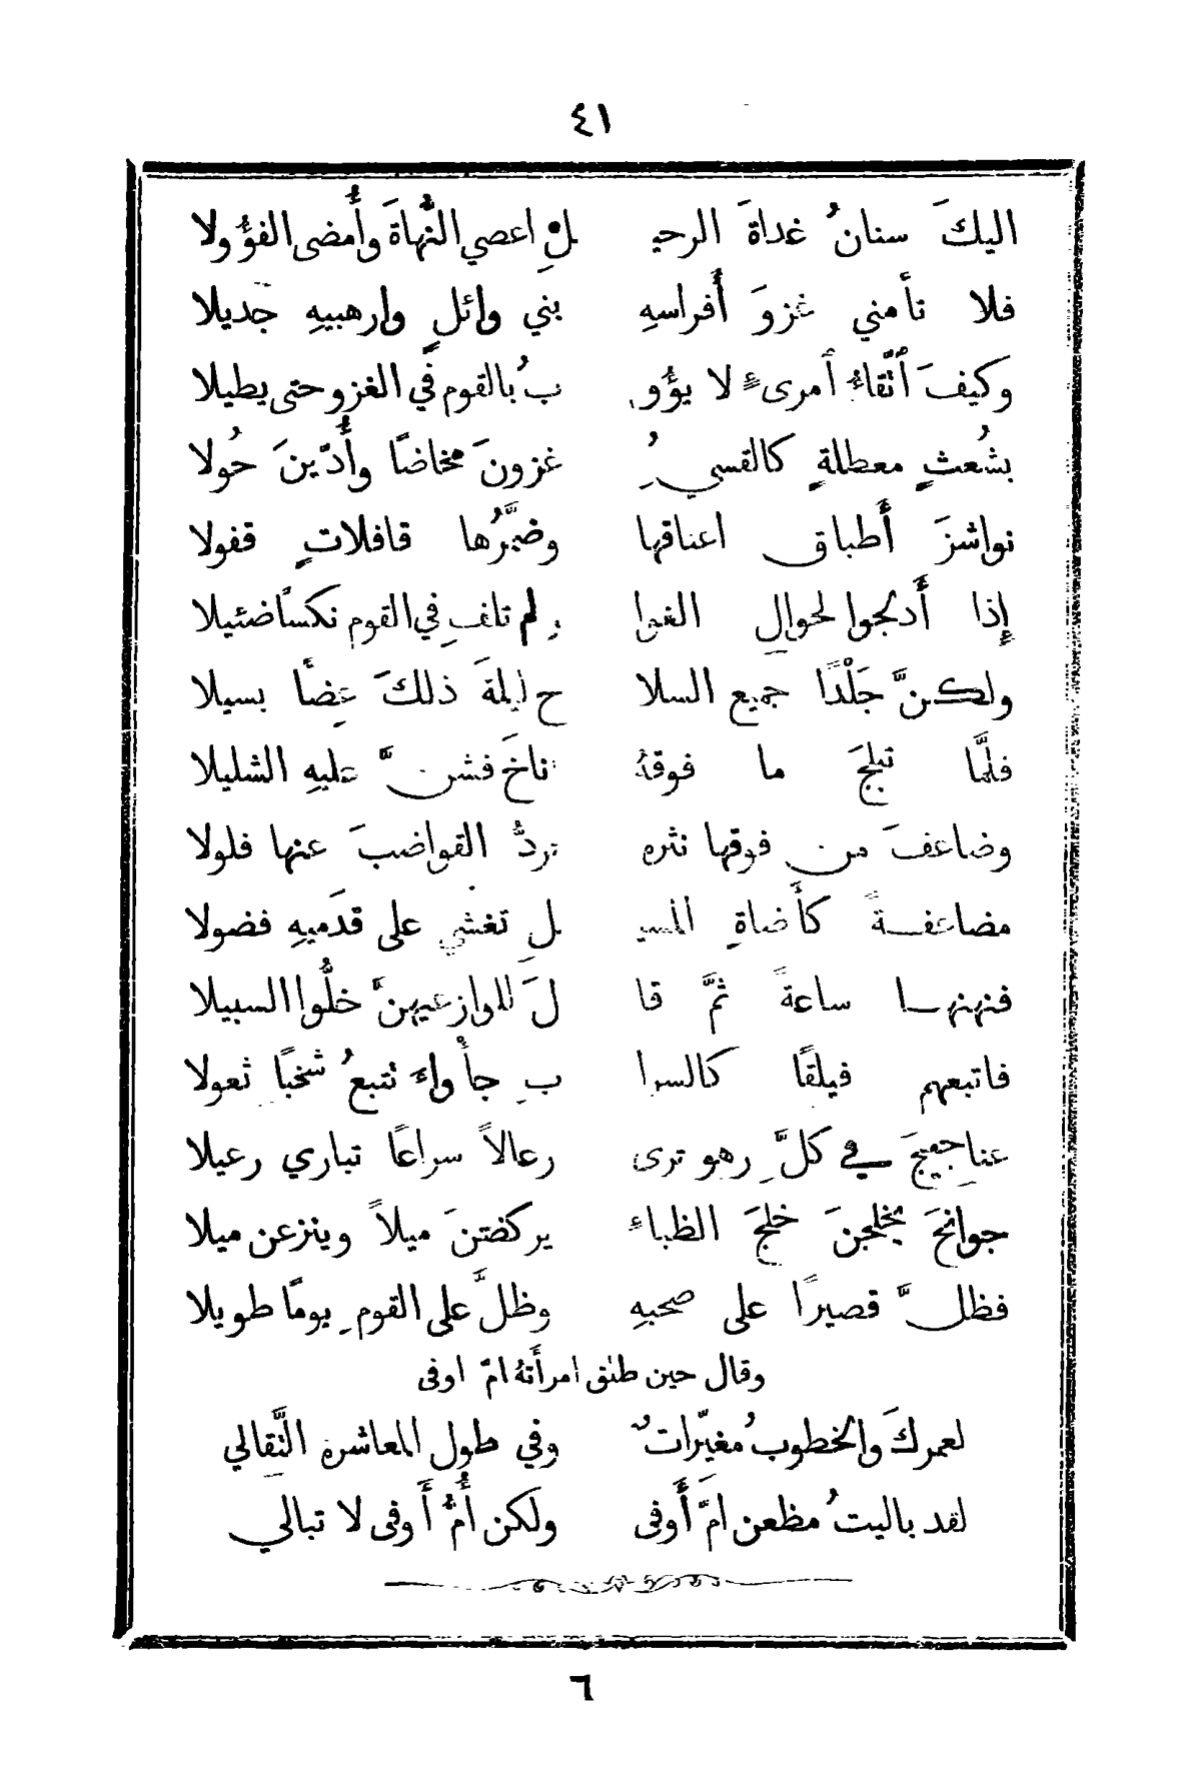 ٤١
اليكَ سنانُ غداةَ الرحيـ ـلِ اعصي النُّهاةَ وأُمضى الفؤُولا
فلا تأمني غزوَ أَفراسهِ بني وائلٍ وارهبيهِ جديلا
وكيفَ اتّقاءُ امرىءٍ لا يؤُو بُ بالقوم في الغزو حتى يطيلا
بشُعثٍ معطلةٍ كالقسيِ غزونَ مخاضًا وأُدّينَ حُولا
نواشزَ أَطباق اعناقها وضمَّرُها قافلاتٍ قفولا
إِذا أَدلجوا لحوالِ الغوا رِ لم تلفِ في القوم نكسًا ضئيلا
ولكنَّ جَلْدًا جميع السلا ح ليلةَ ذلكَ عِضًا بسيلا
فلمَّا تبلجَ ما فوقهُ اناخَ فشنَّ عليهِ الشليلا
وضاعفَ من فوقها نثره تردُّ القواضبَ عنها فلولا
مضاعفةً كأَضاةِ المسيـ ـلِ تغشي على قدَميهِ فضولا
فنهنهـا ساعةً ثمَّ قا لَ للوازعيهنَّ خلُّوا السبيلا
فاتبعهم فيلقًا كالسرا بِ جأْواءَ تتبعُ شخبًا ثعولا
عناجيجَ في كلِّ رهو ترى رعالاً سراعًا تباري رعيلا
جوانحَ يخلجنَ خلجَ الظباءِ يركضنَ ميلاً وينزعن ميلا
فظلَّ قصيرًا على صحبهِ وظلَّ على القومِ يومًا طويلا
وقال حين طلق امرأَتهُ امّ اوفى
لعمركَ والخطوبُ مغيّراتٌ وفي طول المعاشرة التَّقالي
لقد باليتُ مظعن امَّ أَوفى ولكن أُمُّ أَوفى لا تبالي
٦